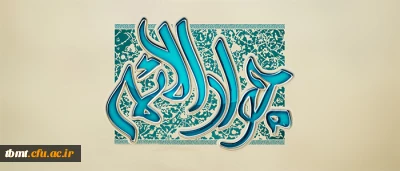 جواد الائمه
tbmt.cfu.ac.ir